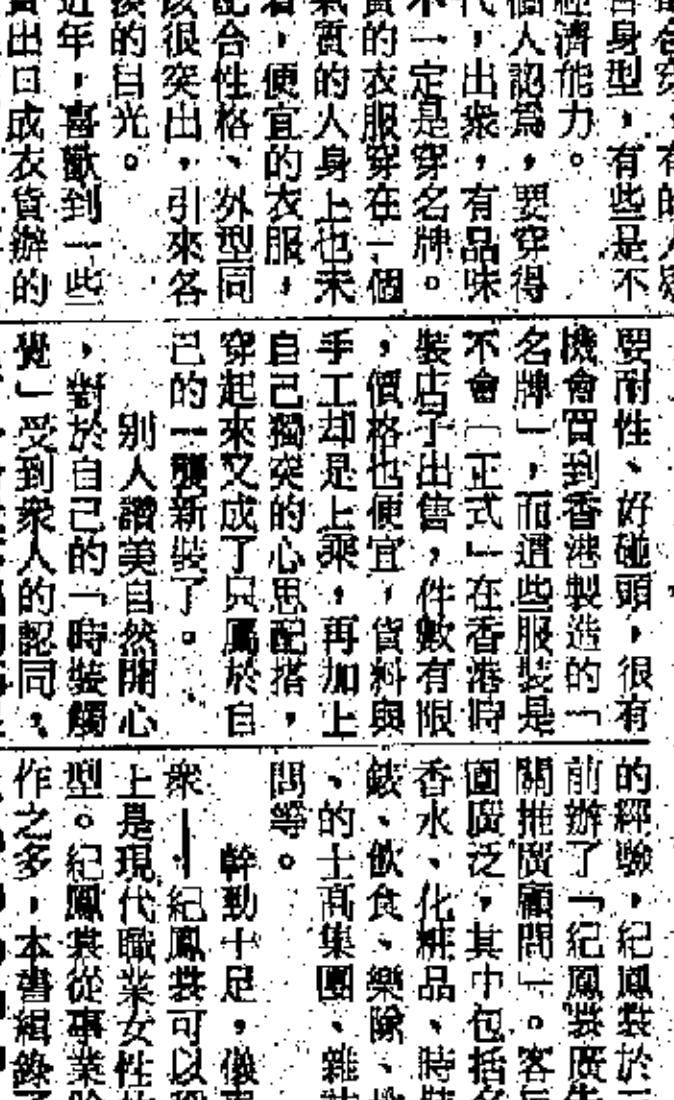 有的人
身型,有些是不
經濟能力。
個人認爲,要穿得
代,出衆,有品味
不一定是穿名牌。
貴的衣服穿在一個
氣質的人身上也未
看,便宜的衣服,
配合性格、外型同
該很突出,引來各
的目光。
近年,喜歡到一些
賣出口成衣貨辦的
要耐性、好碰頭,很有
機會買到香港製造的「
名牌」,而這些服裝是
不會「正式」在香港時
裝店子出售,件數有限
,價格也便宜,貨料與
手工却是上乘,再加上
自己獨突的心思配搭,
穿起來又成了只屬於自
己的一襲新裝了。
別人讚美自然開心
,對於自己的「時裝觸
覺」受到衆人的認同,
的經驗,紀鳳裳於
前辦了「紀鳳裳廣告
關推廣顧問」。客
圍廣泛,其中包括
香水、化粧品、時裝
錶、飲食、樂隊、
、的士高集團、雜誌
問等。
幹勁十足,儀
衆——紀鳳裳可以
上是現代職業女性
型。紀鳳裳從事業
作之多,本書緝錄